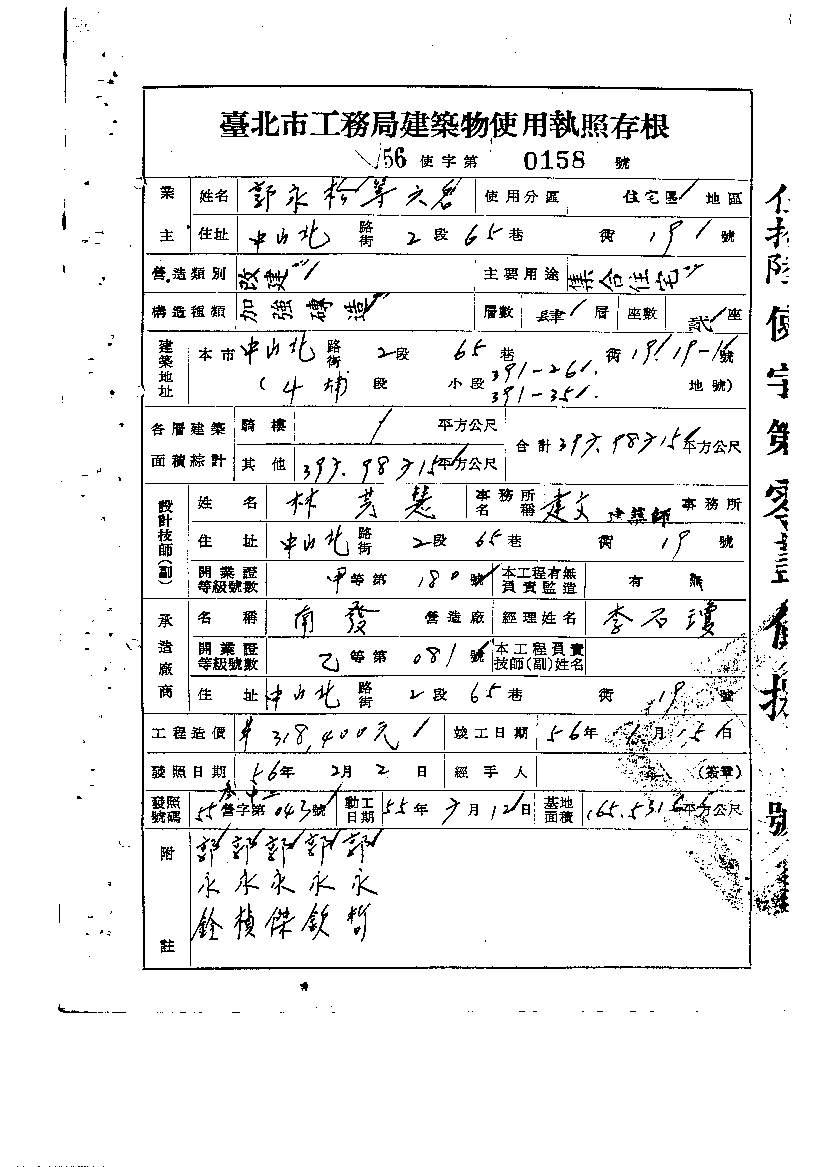 臺北市工務局建築物使用執照存根
56 使字第 0158 號
業主 姓名 郭永松等六名 使用分區 住宅區 地區
住址 中山北 路街 2 段 65 巷 衖 19 號
營造類別 改建 主要用途 集合住宅
構造種類 加強磚造 層數 肆 層 座數 貳 座
建築地址 本市 中山北 路街 2 段 65 巷 衖 19 19-16 號
(牛埔 段 小段 391-26 391-35 地號)
各層建築面積綜計 騎樓 / 平方公尺 合計 平方公尺
其他 平方公尺
設計技師(副) 姓名 林 慧 事務所名稱 建文建築師 事務所
住址 中山北 路街 2 段 65 巷 衖 19 號
開業證等級號數 甲 等第 180 號 本工程有無負責監造 有 無
承造廠商 名稱 南發 營造廠 經理姓名 李石瓊
開業證等級號數 乙 等第 081 號 本工程負責技師(副)姓名
住址 中山北 路街 2 段 65 巷 衖 19 號
工程造價 318,400元 竣工日期 56 年 1 月 日
發照日期 56 年 2 月 2 日 經手人 (簽章)
發照號碼 55 營字第 043 號 動工日期 55 年 月 12 日 基地面積 165.5316 平方公尺
附註 郭永銓 郭永楨 郭永傑 郭永欽 郭永哲
伍拾陸使字第零壹伍捌號